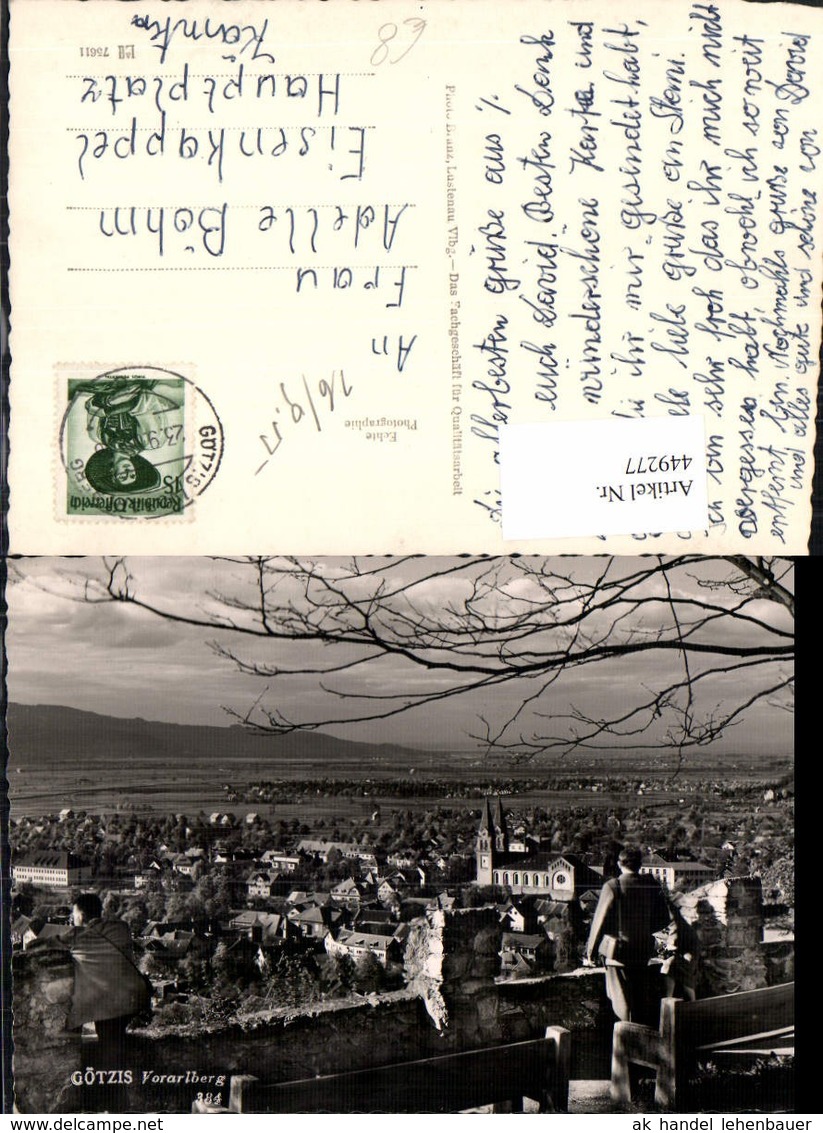 Die allerbesten grüße aus %
euch David. Besten Dank
wünderschöne Karte und
die ihr mir gesindet habt,
alle liebe grüße an Stemi.
Ich bin sehr froh das ihr mich nicht
vergessen habt obwohl ich so weit
entfernt bin. Nochmahls grüße von David
und alles gute und schöne von
Photo Branz, Lustenau Vlbg. — Das Fachgeschäft für Qualitätsarbeit
Echte
Photographie
26/9.57
An
Frau
Adelle Böhm
Eisenkappel
Hauptplatz
Kärnten
PAG 75611
83
GÖTZIS
23.9.
1S
Republik Österreich
Artikel Nr.
449277
GÖTZIS Vorarlberg
384
ak handel lehenbauer